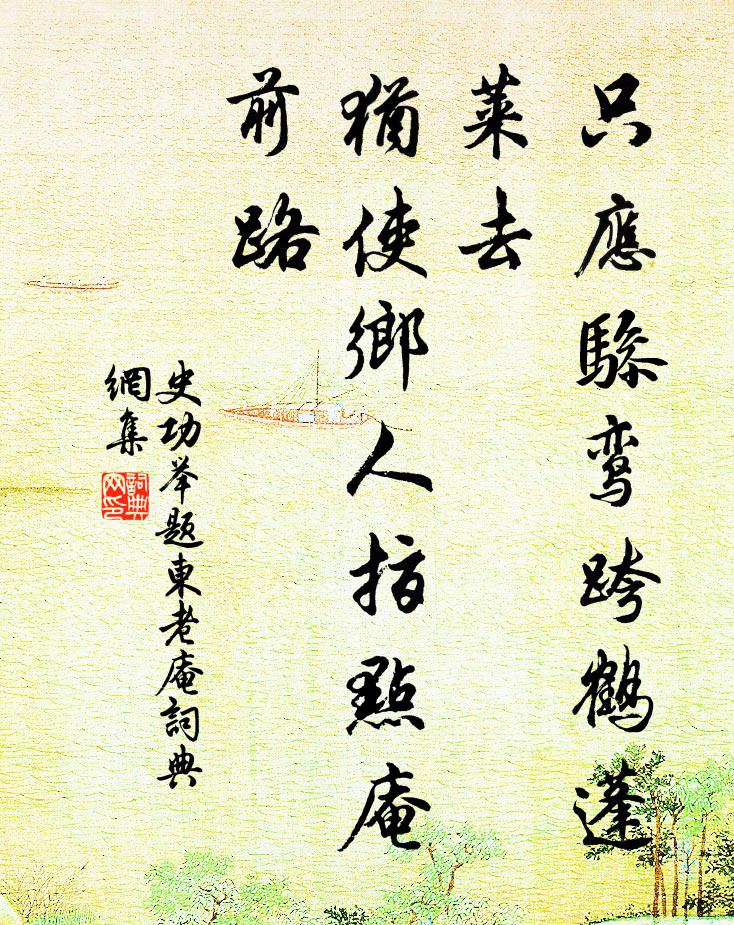 只應驂鸾跨鶴蓬
萊去
猶使鄉人指點庵
前路
史功举題東老庵詞典
網集
詞典
网印